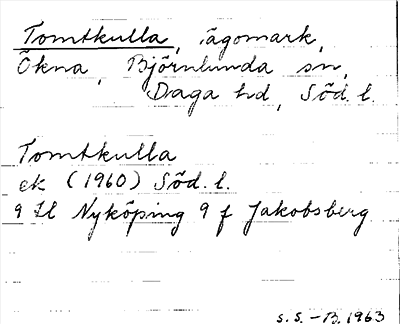 Tomtkulla, ägomark,
Ökna, Björnlunda sn,
Daga hd, Söd. l.
Tomtkulla
ek (1960) Söd. l.
9 Il Nyköping 9 f Jakobsberg
S.S. – B. 1963